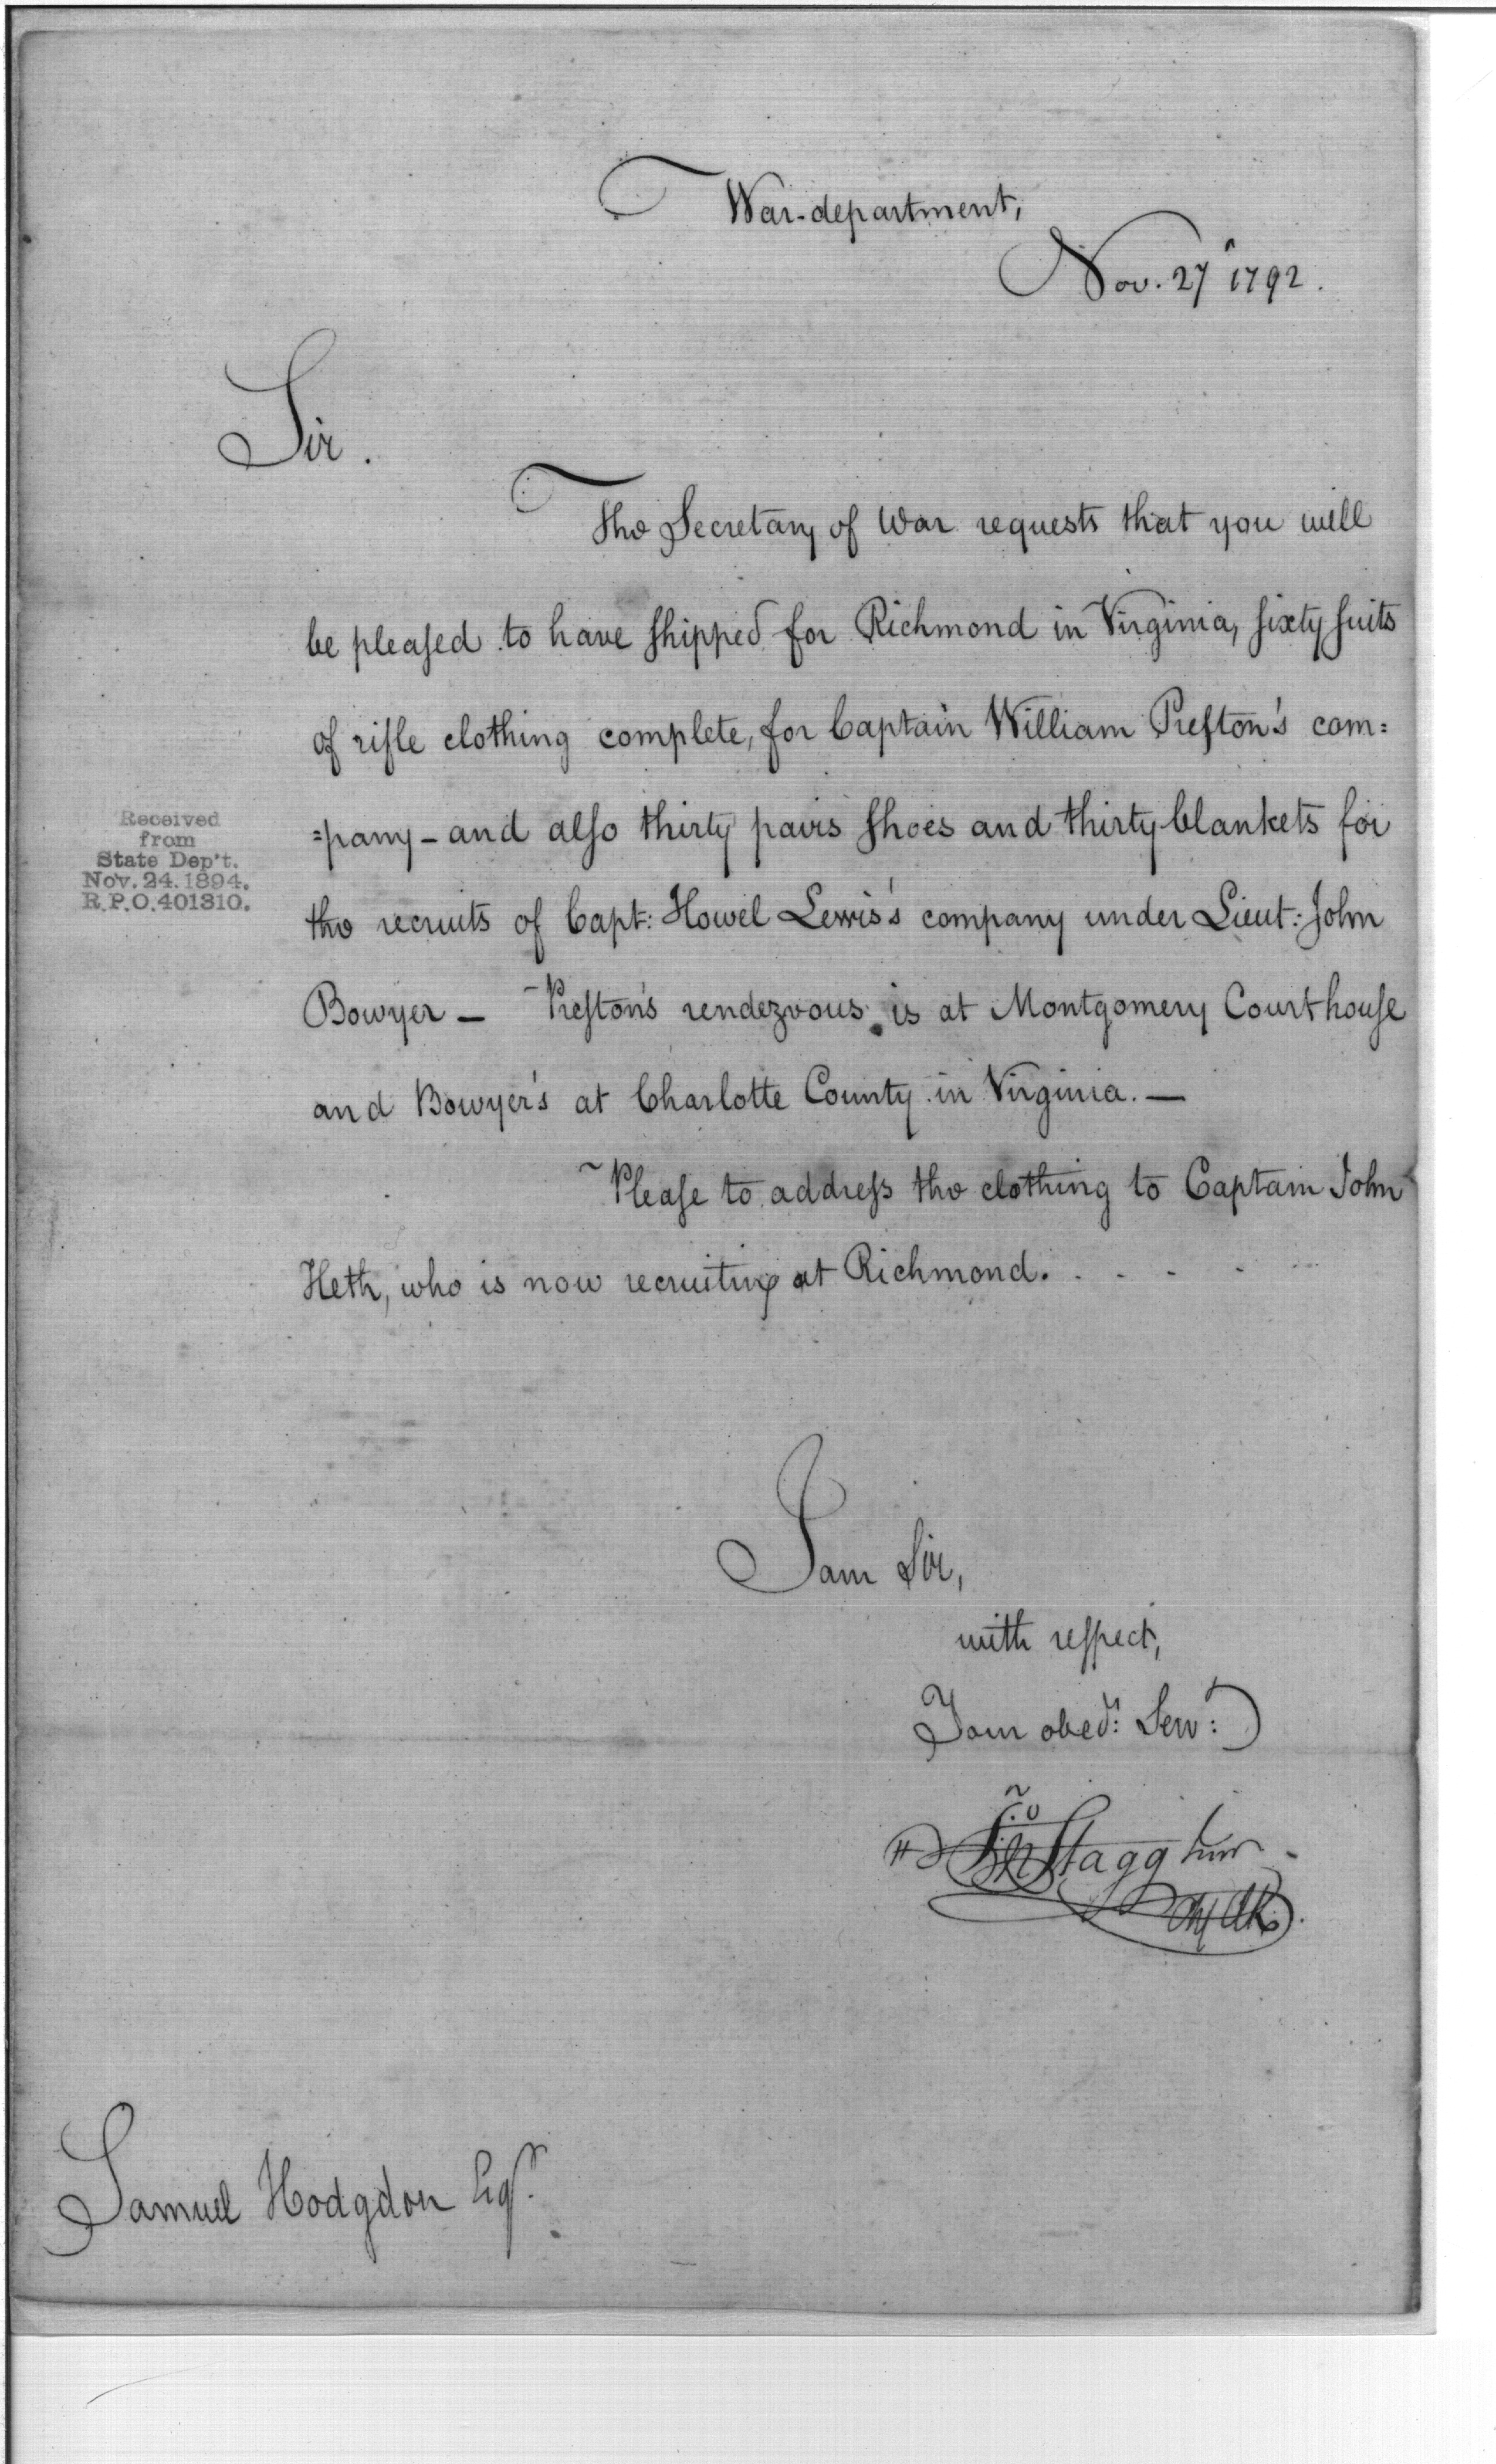 War-department,
Nov. 27 1792.
Sir.
The Secretary of War requests that you will
be pleased to have shipped for Richmond in Virginia, sixty suits
of rifle clothing complete, for Captain William Preston's com=
=pany - and also thirty pairs shoes and thirty blankets for
Received
from
State Dep't.
Nov. 24. 1894.
R.P.O. 401310.
the recruits of Capt: Howel Lewis's company under Lieut: John
Bowyer - Preston's rendezvous is at Montgomery Courthouse
and Bowyer's at Charlotte County in Virginia. -
Please to address the clothing to Captain John
Heth, who is now recruiting at Richmond. . . . . .
I am Sir,
with respect,
Your obed.t: Serv.t:
Jno Stagg Junr
Chf Clk.
Samuel Hodgdon Esqr.